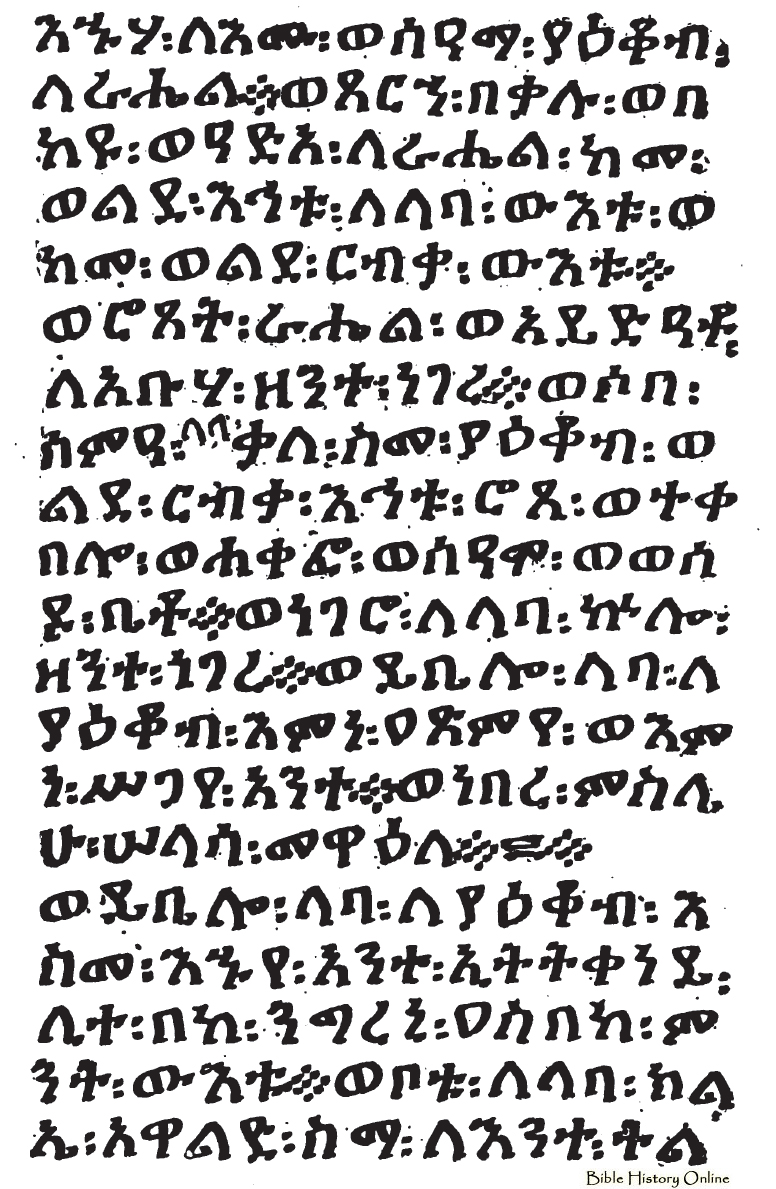 እኁሃ፡ለእሙ፡ወሰዓማ፡ያዕቆብ፡
ለራሔል፨ወጸርኀ፡በቃሉ፡ወበ
ከየ፡ወዓይድአ፡ለራሔል፡ከመ፡
ወልደ፡እኅቱ፡ለላባ፡ውእቱ፡ወ
ከመ፡ወልደ፡ርብቃ፡ውእቱ፨
ወሮጸት፡ራሔል፡ወአይድዓቶ፡
ለአቡሃ፡ዘንተ፡ነገረ፨ወሶበ፡
ሰምዓ፡ላባ፡ቃለ፡ስመ፡ያዕቆብ፡ወ
ልደ፡ርብቃ፡እኅቱ፡ሮጸ፡ወተቀ
በሎ፡ወሐቀፎ፡ወሰዓሞ፡ወወሰ
ዶ፡ቤቶ፨ወነገሮ፡ለላባ፡ኵሎ፡
ዘንተ፡ነገረ፨ወይቤሎ፡ላባ፡ለ
ያዕቆብ፡እምነ፡ዐጽምየ፡ወእም
ነ፡ሥጋየ፡አንተ፨ወነበረ፡ምስሌ
ሁ፡ሠላሰ፡መዋዕለ፨=፨
ወይቤሎ፡ላባ፡ለያዕቆብ፡እ
ስመ፡እኁየ፡አንተ፡ኢትትቀነይ፡
ሊተ፡በከ፡ንግረኒ፡ዐስበከ፡ም
ንት፡ውእቱ፨ወቦቱ፡ለላባ፡ክል
ኤ፡አዋልድ፡ስማ፡ለእንተ፡ትል
Bible History Online